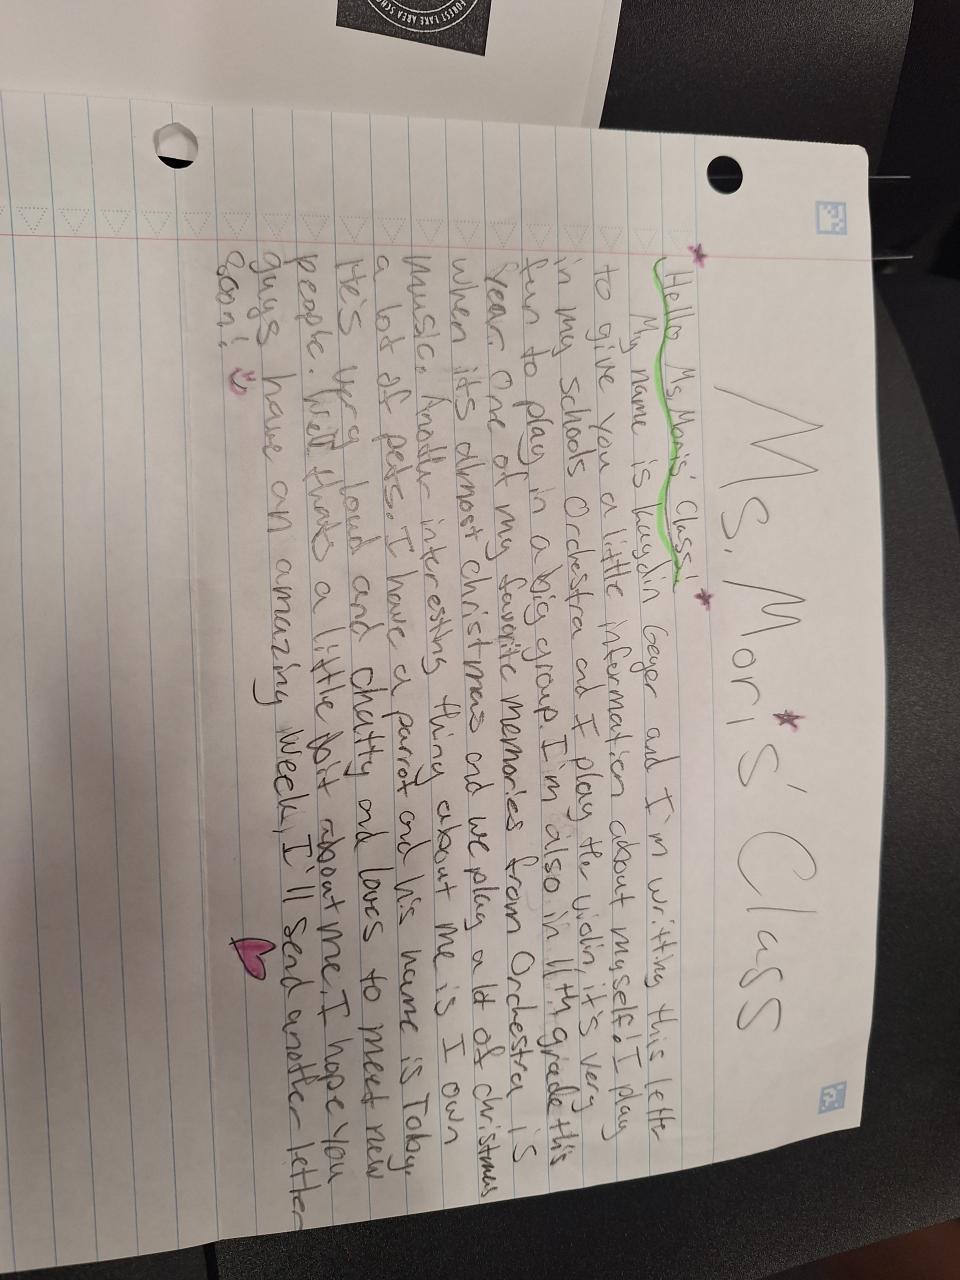 FOREST LAKE AREA SCH
Ms. Moris' Class
Hello Ms. Moris' Class!
My name is haydin Geyer and I'm writting this lette
to give you a little information about myself! I play
in my schools Orchestra and I play the violin, it's very
fun to play in a big group. I'm also in 11th grade this
year. One of my favorite memories from Orchestra is
when its almost christmas and we play a lot of christmas
music. Another interesting thing about me is I own
a lot of pets. I have a parrot and his name is Toby.
He's very loud and chatty and loves to meet new
people. Well thats a little bit about me. I hope you
guys have an amazing week, I'll send another letter
soon!